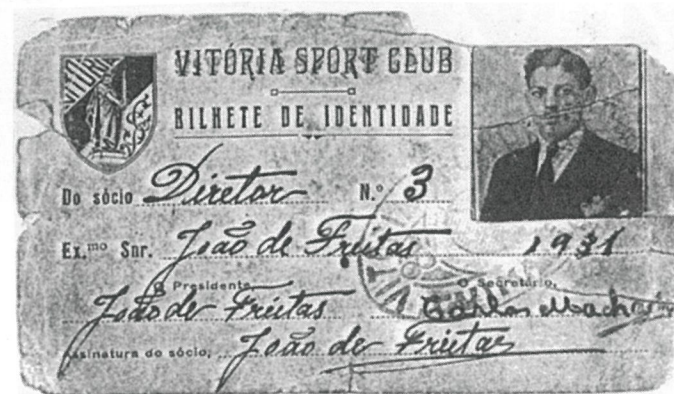 VITÓRIA SPORT CLUB
BILHETE DE IDENTIDADE
Do sócio Diretor N.º 3
Ex.mo Snr. João de Freitas 1931
O Presidente, O Secretário,
João de Freitas Carlos Mach
Assinatura do sócio, João de Freitas
VITÓRIA